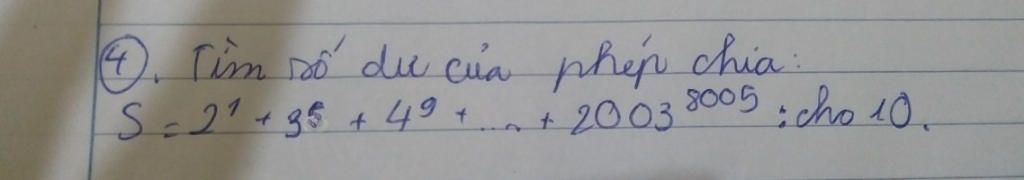 ④. Tìm số dư của phép chia:
S = 2¹ + 3⁵ + 4⁹ + ... + 2003⁸⁰⁰⁵ : cho 10.